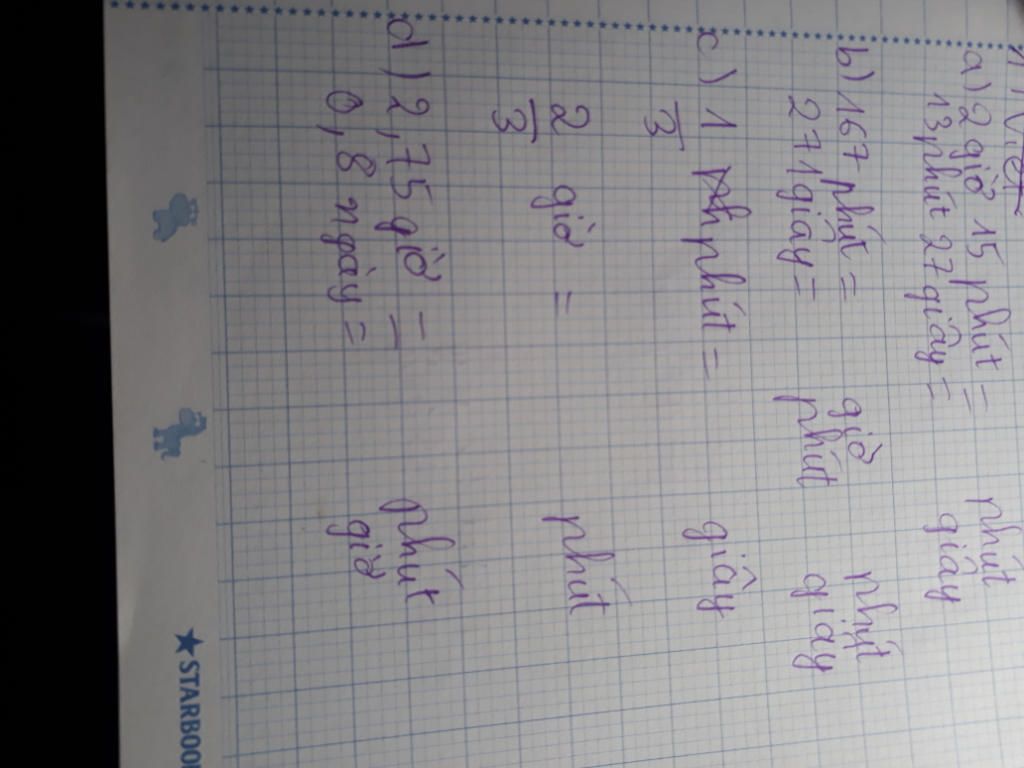 a) 2 giờ 15 phút = phút
13 phút 27 giây = giây
b) 167 phút = giờ phút
271 giây = phút giây
c) 1/3 phút = giây
2/3 giờ = phút
d) 2,75 giờ = phút
0,8 ngày = giờ
★ STARBOO